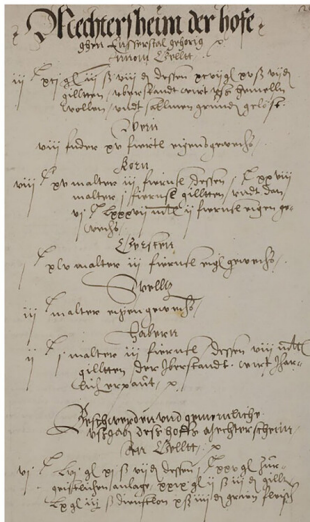 Mechtersheim der hofe
ghen Eusserstal gehorig
Innom Geltt
iij^c xcj gl iij ß viij ₰ dessen xcvij gl xvß vij ₰
gilltten, uberstandt wirt uß
wollen, undt allmen grundt gelost
Wein
viij fuder xv fiertl eigens gewechs
Korn
viij^c xv malter iij fiernsel dessen j^c lxxviij
malter j fiernsel gilltten undt dan
vj^c lxxxvij mlt ij fiernsel eigen ge-
wechs
Gersten
j^c xlv malter iij fiernsel eigl gewechs
Speltz
iij^c malter eigen gewechs
Habern
ij^c j malter iij fiernsel dessen viij mlt
gilltten der Uberstandt wirt Jhar-
lich erpaut
Beschwerden und gemeinliche
usgab des hoffs Mechtersheim
An Geltt
vj^c lvj gl xj ß vij ₰ dessen j^c lxxv gl zur
geistlichen anlage xxix gl ij ß iij ₰ gillt
lx gl iij ß dinstlon xß iiij ₰ grien fleisch